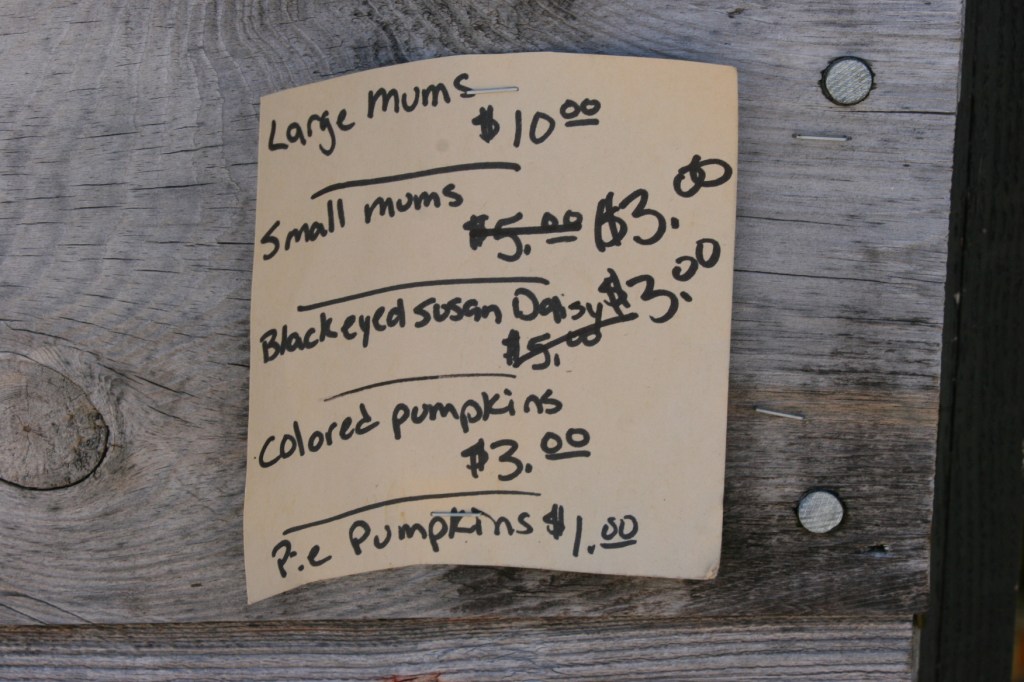 Large mums
$10 00
Small mums
$5.00 $3.00
Blackeyed Susan Daisy $3.00
$5.00
colored pumpkins
$3.00
Pie Pumpkins $1.00